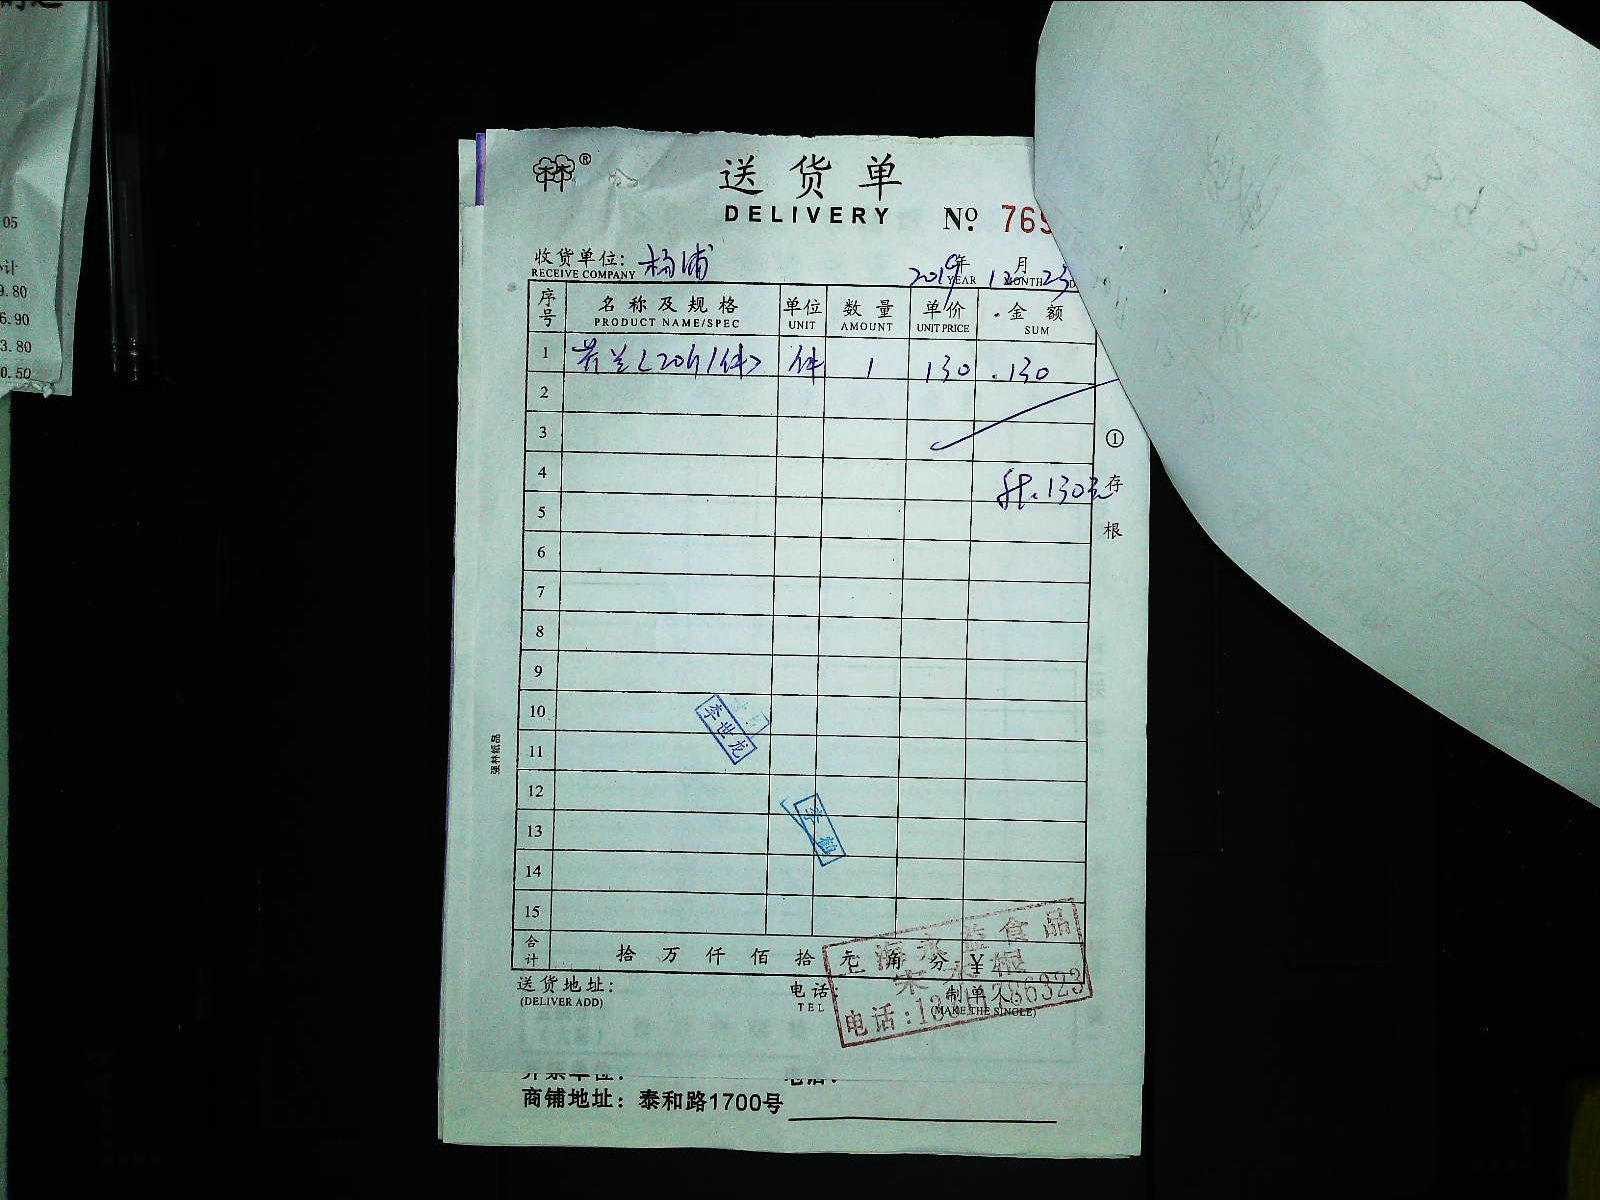 05
计
9.80
6.90
3.80
0.50
®
送货单
DELIVERY
No. 769
收货单位: 杨浦
RECEIVE COMPANY
2019年 12月 23
YEAR MONTH D
序号 名称及规格 单位 数量 单价 金额
PRODUCT NAME/SPEC UNIT AMOUNT UNIT PRICE SUM
1 芥兰<20斤/件> 件 1 130 130
2
3
4 130元
5
6
7
8
9
10
11
12
13
14
15
① 存根
李世龙
强林纸品
合计 拾万仟佰拾元角分¥
上海永益食品
送货地址: 电话: 制单人
(DELIVER ADD) TEL (MAKE THE SINGLE)
电话:
商铺地址: 泰和路1700号